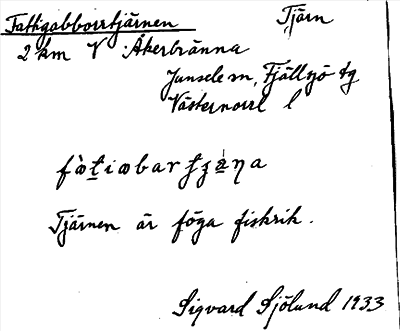 Fattigabborrtjärnen Tjärn
2 km V Åkerbränna
Junsele sn, Fjällsjö tg
Västernorrl l
Tjärnen är föga fiskrik.
Sigvard Sjölund 1933